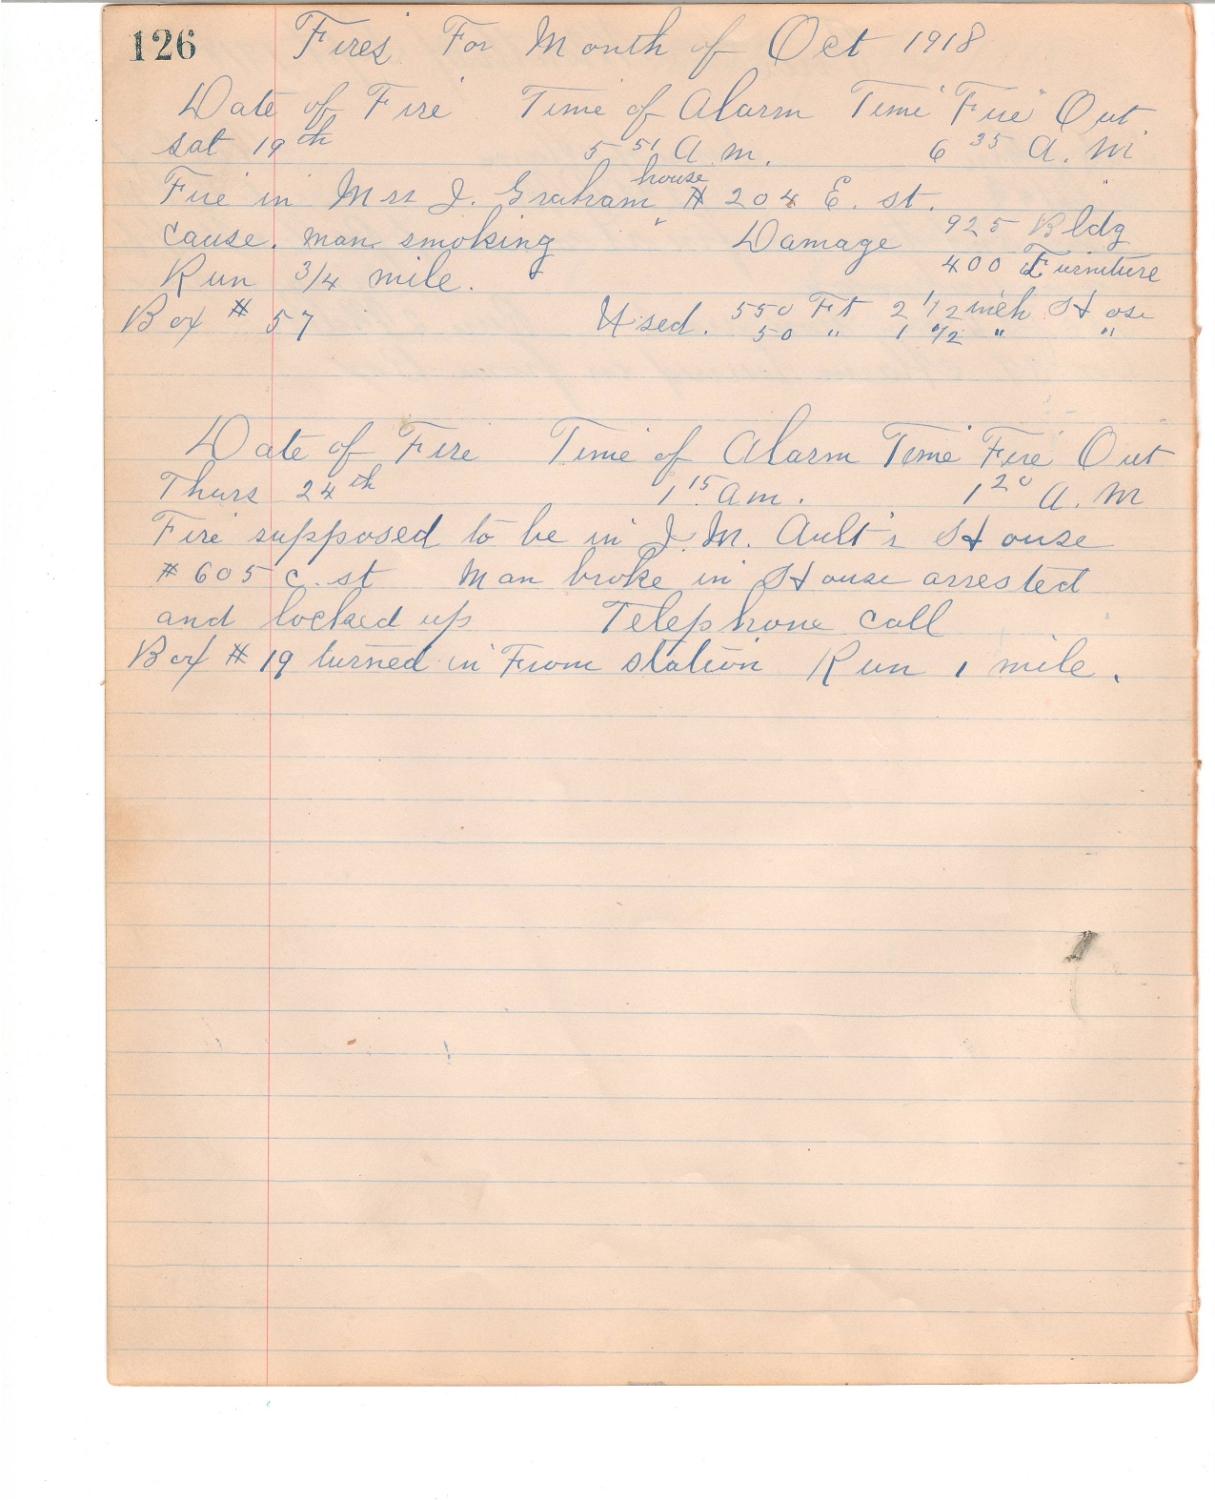 126 Fires For Month of Oct 1918
Date of Fire Time of Alarm Time Fire Out
Sat 19th 5 51 A.m. 6 35 A.M
Fire in Mrs J. Graham house # 204 E. st.
cause. man smoking Damage 925 Bldg
Run 3/4 mile. 400 Furniture
Box # 57 Used. 550 Ft 2 1/2 inch Hose
50 " 1 1/2 " "
Date of Fire Time of Alarm Time Fire Out
Thurs 24th 1 15 am. 1 20 A.M
Fire supposed to be in J.M. Ault's House
# 605 C. st Man broke in House arrested
and locked up Telephone call
Box # 19 turned in From station Run 1 mile.